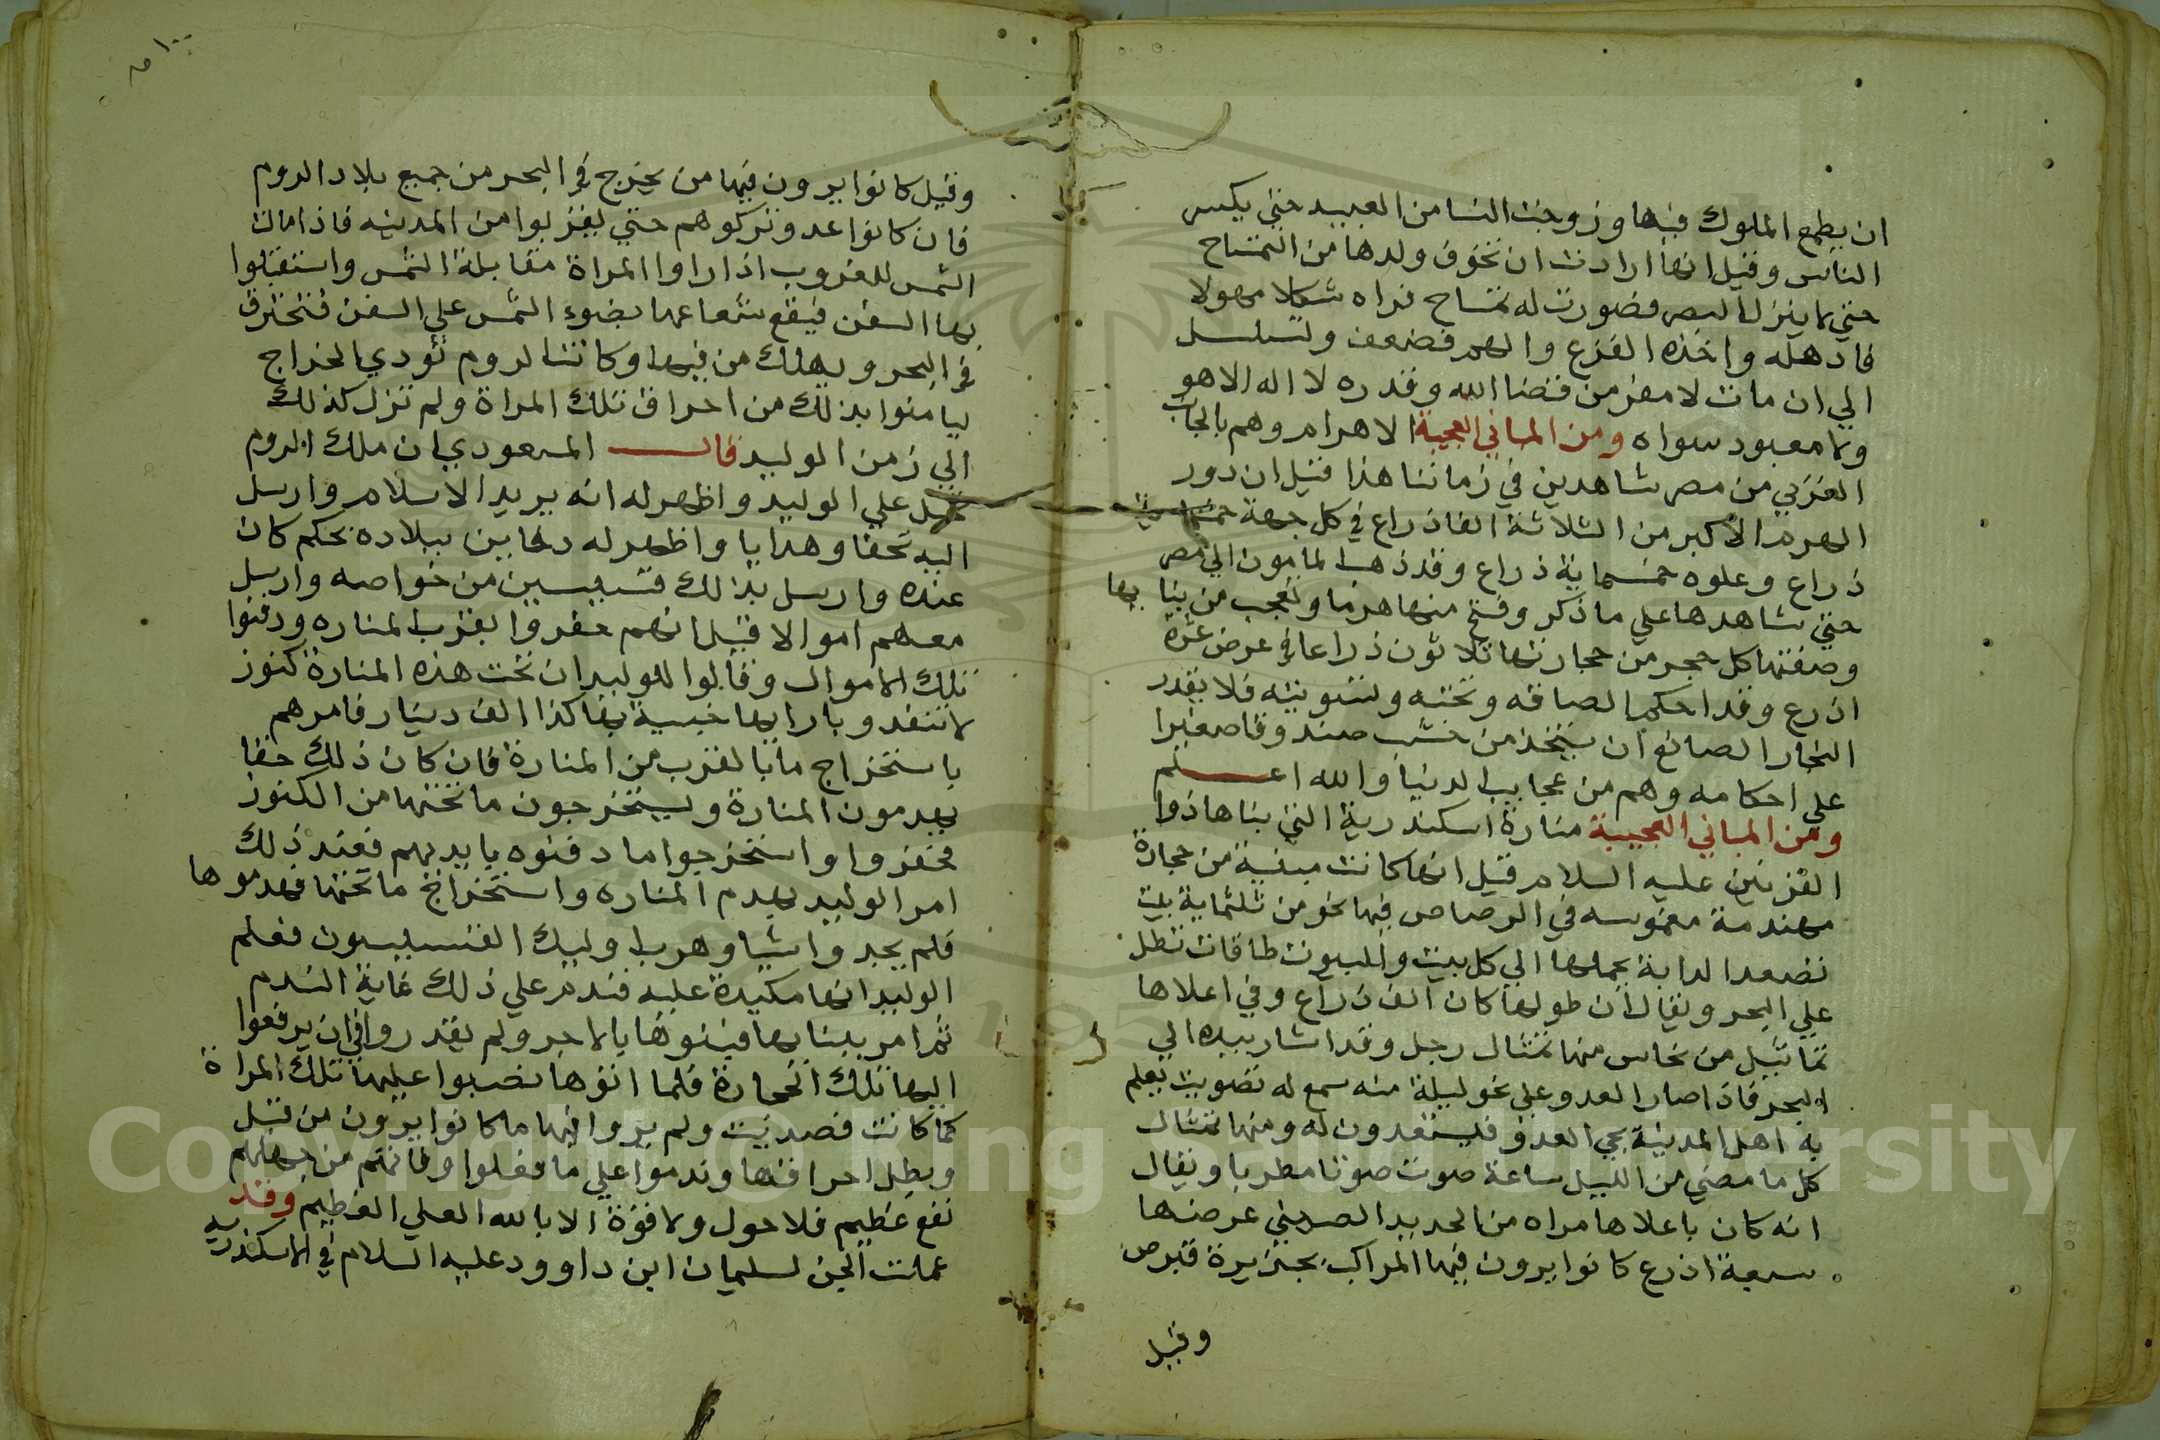 ان يطمع الملوك فيها وزوجت النسا من العبيد حتي يكبس
الناس وقيل انها ارادت ان تخوف ولدها من التمساح
حتي لا ينزل البحر فصورت له تمساح فراه شكلا مهولا
فاذهله واخذه الفزع والهم فضعف وتسلسل
الي ان مات لا مفر من قضا الله وقدره لا اله الا هو
ولا معبود سواه ومن المباني العجيبة الاهرام وهم بالجانب
الغربي من مصر شاهدين في زماننا هذا قيل ان دور
الهرم الاكبر من الثلاثة الفا ذراع في كل جهة خمسماية
ذراع وعلوه خمسماية ذراع وقد ذهب المامون الي مصر
حتي شاهدها علي ما ذكر وفتح منها هرما وتعجب من بنا بها
وصفتها كل حجر من حجارتها ثلاثون ذراعا في عرض عشرة
اذرع وقد احكم الصاقه ونحته وتسويته فلا يقدر
النجار الصانع ان يتخذ من خشب صندوقا صغيرا
علي احكامه وهم من عجايب الدنيا والله اعلم
ومن المباني العجيبة منارة اسكندرية التي بناها ذوا
القرنين عليه السلام قيل انها كانت مبنية من حجارة
مهندمة مغموسه في الرصاص فيها نحو من ثلثماية بيت
تصعد الدابة بحملها الي كل بيت وللبيوت طاقات تطل
علي البحر ويقال ان طولها كان الف ذراع وفي اعلاها
تماثيل من نحاس منها تمثال رجل وقد اشار بيده الي
البحر فاذا صار العدو علي نحو ليلة منه سمع له تصويت يعلم
به اهل المدينة بمجي العدو فليستعدون له ومنها تمثال
كل ما مضي من الليل ساعة صوت صوتا مطربا ويقال
انه كان باعلاها مراه من الحديد الصيني عرضها
سبعة اذرع كانوا يرون فيها المراكب بجزيرة قبرص
وقيل
وقيل كانوا يرون فيها من يخرج في البحر من جميع بلاد الروم
فان كانوا عدو تركوهم حتي يقربوا من المدينه فاذا مالت
الشمس للغروب اداروا المراة مقابلة الشمس واستقبلوا
بها السفن فيقع شعاعها بضوء الشمس علي السفن فتحترق
في البحر ويهلك من فيها وكانت الروم تودي الخراج
ليامنوا بذلك من احراق تلك المراة ولم تزل كذلك
الي زمن الوليد قال المسعودي ان ملك الروم
تحيل علي الوليد واظهر له انه يريد الاسلام وارسل
اليه تحفا وهدايا واظهر له دفاين ببلاده بحكم كان
عنده وارسل بذلك قسيسين من خواصه وارسل
معهم اموالا قيل انهم حفروا بقرب المناره ودفنوا
تلك الاموال وقالوا للوليد ان تحت هذه المنارة كنوز
لا تنفد وبارابها خبية بها كذا الف دينار فامرهم
باستخراج ما بالقرب من المنارة فان كان ذلك حقا
يهدمون المنارة ويستخرجون ما تحتها من الكنوز
فحفروا واستخرجوا ما دفنوه بايديهم فعند ذلك
امر الوليد بهدم المناره واستخراج ما تحتها فهدموها
فلم يجدوا شيا وهرب اوليك القسيسون فعلم
الوليد انها مكيدة عليه فندم علي ذلك غاية الندم
ثم امر ببنايها فبنوها بالاجر ولم يقدروا في ان يرفعوا
اليها تلك الحجارة فلما اتوها نصبوا عليها تلك المراة
كما كانت فصديت ولم يروا فيها ما كانوا يرون من قبل
وبطل احراقها وندموا علي ما فعلوا وفاتهم من جهلهم
نفع عظيم فلا حول ولا قوة الا بالله العلي العظيم وقد
عملت الجن لسليمان ابن داوود عليه السلام في الاسكندريه
Copyright © King Saud University
1957